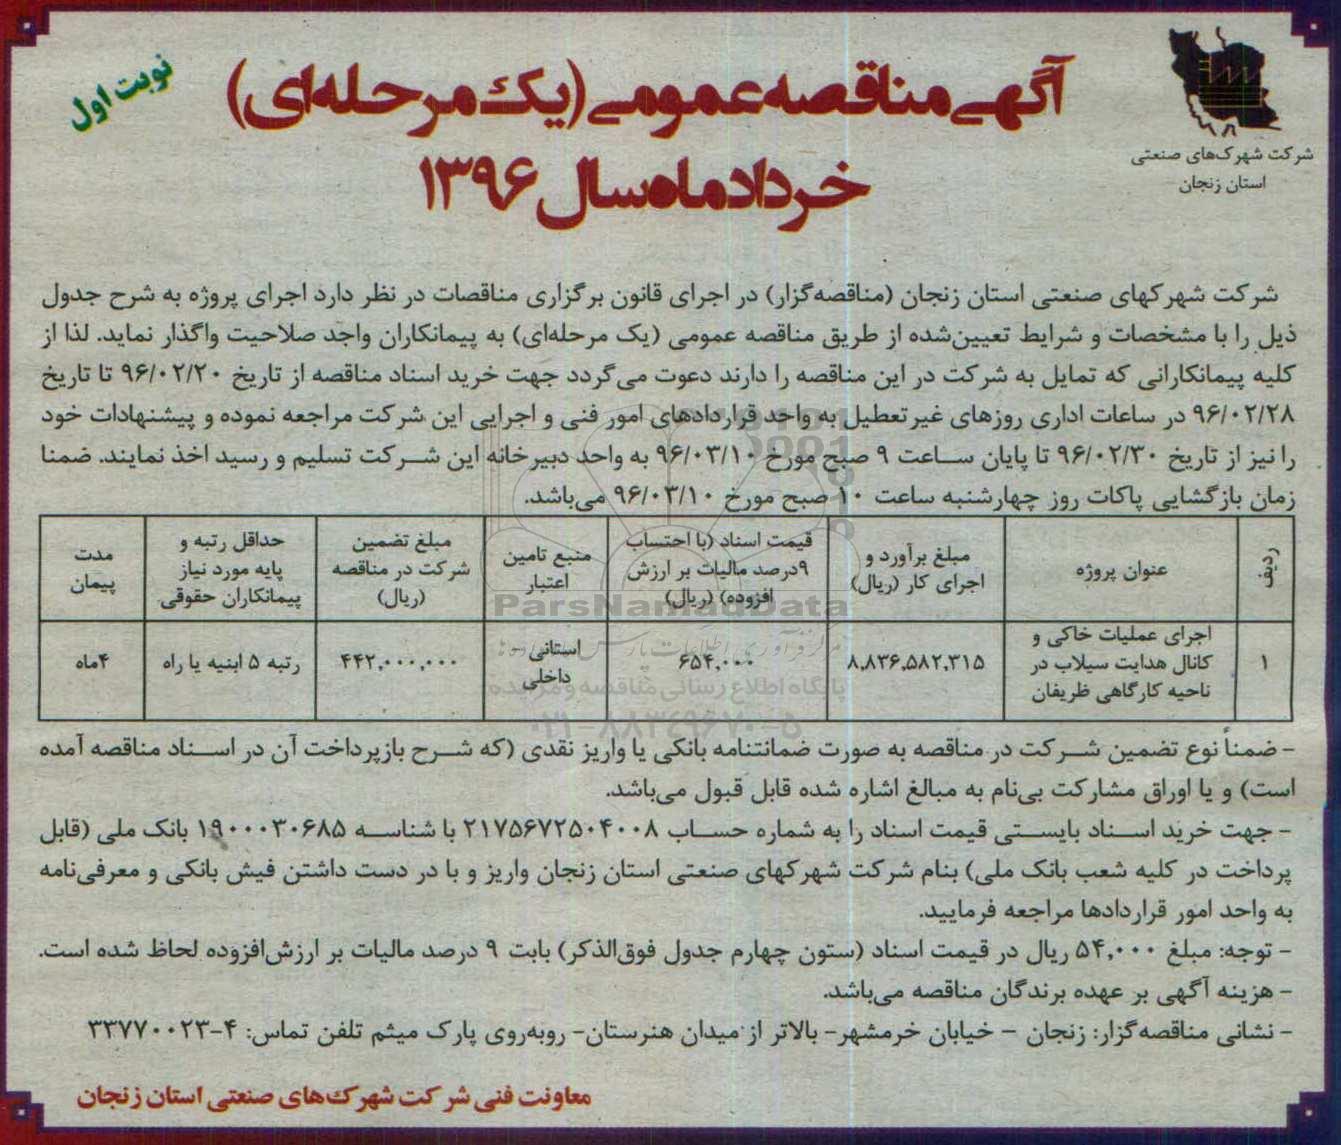 شرکت شهرک‌های صنعتی
استان زنجان
نوبت اول
آگهی مناقصه عمومی (یک مرحله‌ای)
خرداد ماه سال ۱۳۹۶
شرکت شهرکهای صنعتی استان زنجان (مناقصه‌گزار) در اجرای قانون برگزاری مناقصات در نظر دارد اجرای پروژه به شرح جدول
ذیل را با مشخصات و شرایط تعیین‌شده از طریق مناقصه عمومی (یک مرحله‌ای) به پیمانکاران واجد صلاحیت واگذار نماید. لذا از
کلیه پیمانکارانی که تمایل به شرکت در این مناقصه را دارند دعوت می‌گردد جهت خرید اسناد مناقصه از تاریخ ۹۶/۰۲/۲۰ تا تاریخ
۹۶/۰۲/۲۸ در ساعات اداری روزهای غیرتعطیل به واحد قراردادهای امور فنی و اجرایی این شرکت مراجعه نموده و پیشنهادات خود
را نیز از تاریخ ۹۶/۰۲/۳۰ تا پایان ساعت ۹ صبح مورخ ۹۶/۰۳/۱۰ به واحد دبیرخانه این شرکت تسلیم و رسید اخذ نمایند. ضمنا
زمان بازگشایی پاکات روز چهارشنبه ساعت ۱۰ صبح مورخ ۹۶/۰۳/۱۰ می‌باشد.
ردیف
عنوان پروژه
مبلغ برآورد و
اجرای کار (ریال)
قیمت اسناد (با احتساب
۹درصد مالیات بر ارزش
افزوده) (ریال)
منبع تامین
اعتبار
مبلغ تضمین
شرکت در مناقصه
(ریال)
حداقل رتبه و
پایه مورد نیاز
پیمانکاران حقوقی
مدت
پیمان
۱
اجرای عملیات خاکی و
کانال هدایت سیلاب در
ناحیه کارگاهی ظریفان
۸,۸۳۶,۵۸۲,۳۱۵
۶۵۴,۰۰۰
استانی -
داخلی
۴۴۲,۰۰۰,۰۰۰
رتبه ۵ ابنیه یا راه
۴ماه
- ضمناً نوع تضمین شرکت در مناقصه به صورت ضمانتنامه بانکی یا واریز نقدی (که شرح بازپرداخت آن در اسناد مناقصه آمده
است) و یا اوراق مشارکت بی‌نام به مبالغ اشاره شده قابل قبول می‌باشد.
- جهت خرید اسناد بایستی قیمت اسناد را به شماره حساب ۲۱۷۵۶۷۲۵۰۴۰۰۸ با شناسه ۱۹۰۰۰۳۰۶۸۵ بانک ملی (قابل
پرداخت در کلیه شعب بانک ملی) بنام شرکت شهرکهای صنعتی استان زنجان واریز و با در دست داشتن فیش بانکی و معرفی‌نامه
به واحد امور قراردادها مراجعه فرمایید.
- توجه: مبلغ ۵۴,۰۰۰ ریال در قیمت اسناد (ستون چهارم جدول فوق‌الذکر) بابت ۹ درصد مالیات بر ارزش‌افزوده لحاظ شده است.
- هزینه آگهی بر عهده برندگان مناقصه می‌باشد.
- نشانی مناقصه‌گزار: زنجان - خیابان خرمشهر- بالاتر از میدان هنرستان- روبه‌روی پارک میثم تلفن تماس: ۴-۳۳۷۷۰۰۲۳
معاونت فنی شرکت شهرک‌های صنعتی استان زنجان
ParsNamadData
پایگاه اطلاع رسانی مناقصه و مزایده
۰۲۱-۸۸۳۴۹۶۷۰-۵